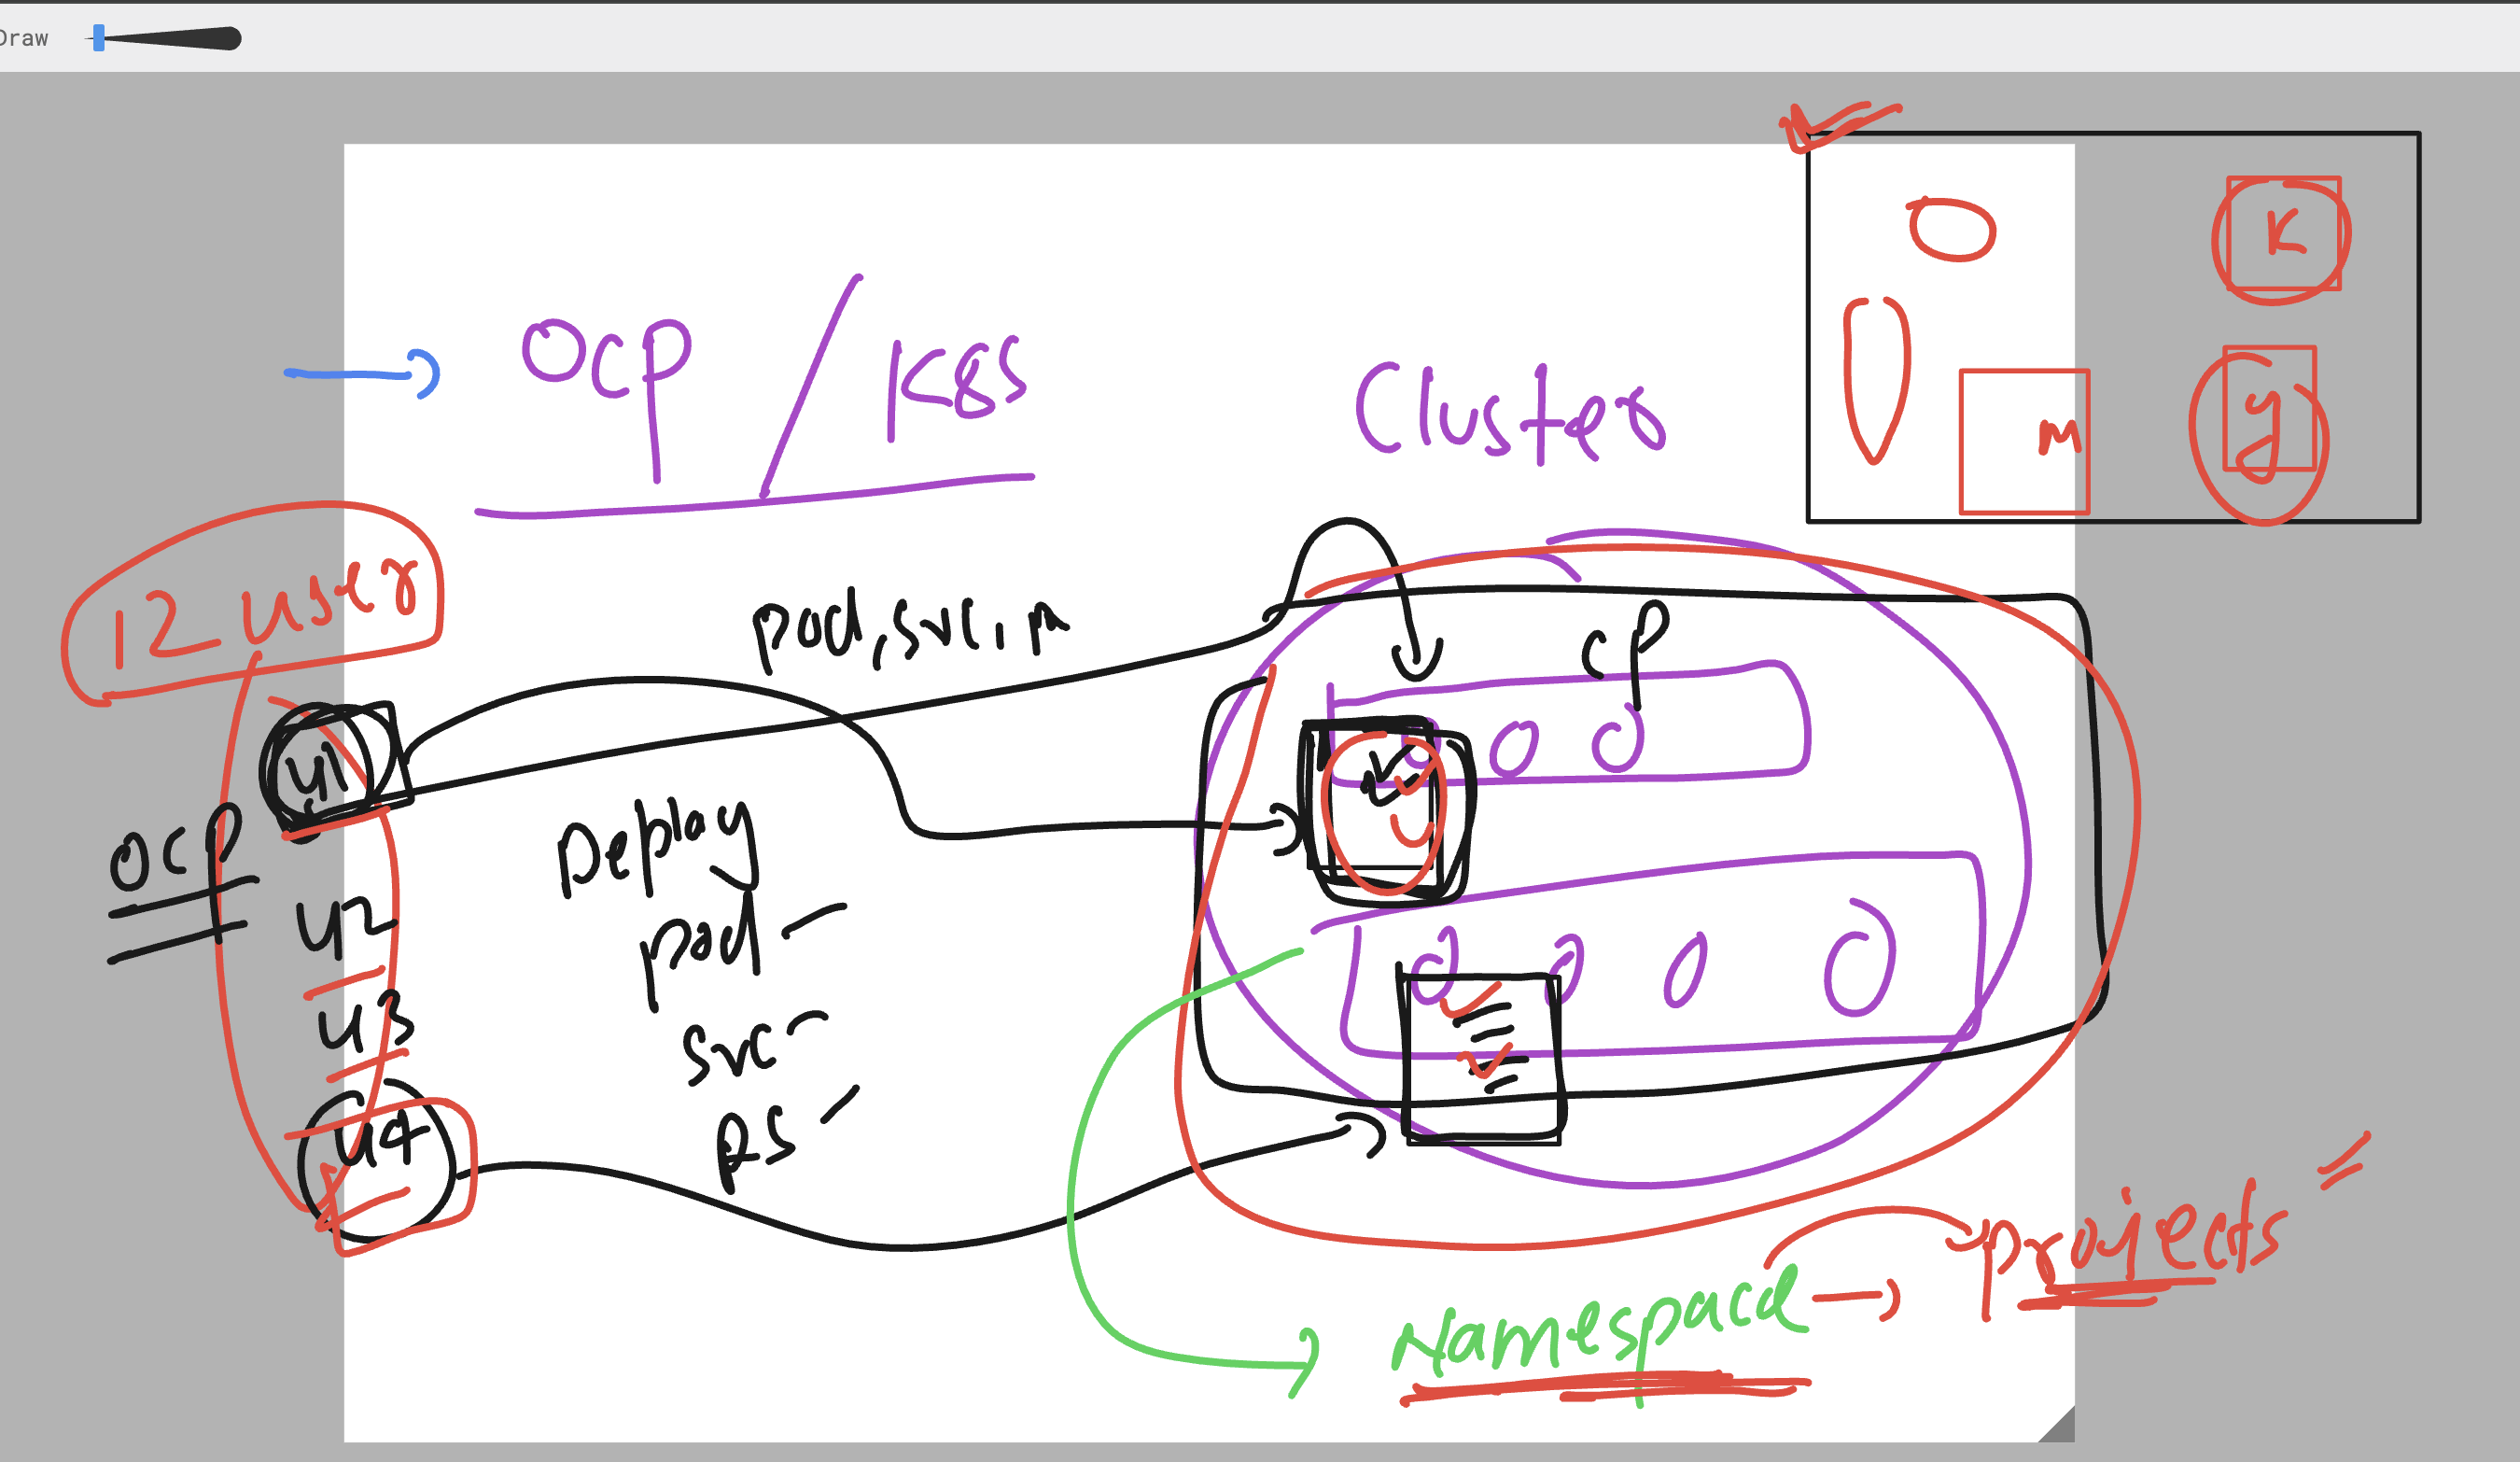 Draw
OCP / K8S
Cluster
K
M
y
12 user
pod, svc, p
CP
u1
OCP
Deploy
u2
pod
u3
svc
u4
RS
Namespace → Projects